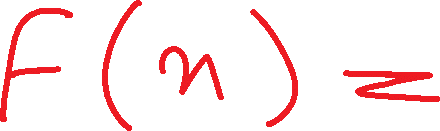 F(n) =